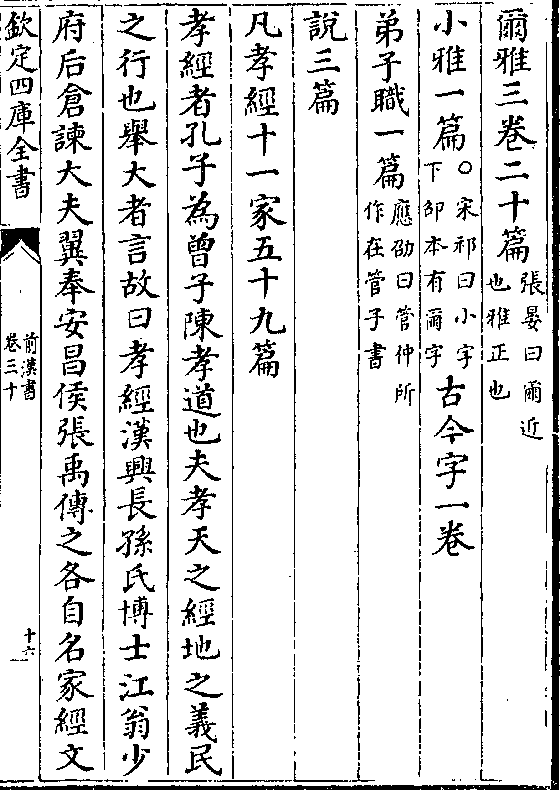 爾雅三卷二十篇張晏曰爾近也雅正也
小雅一篇○宋祁曰小字下邵本有爾字古今字一卷
弟子職一篇應劭曰管仲所作在管子書
說三篇
凡孝經十一家五十九篇
孝經者孔子為曾子陳孝道也夫孝天之經地之義民
之行也舉大者言故曰孝經漢興長孫氏博士江翁少
府后倉諫大夫翼奉安昌侯張禹傳之各自名家經文
欽定四庫全書
前漢書
卷三十
十六